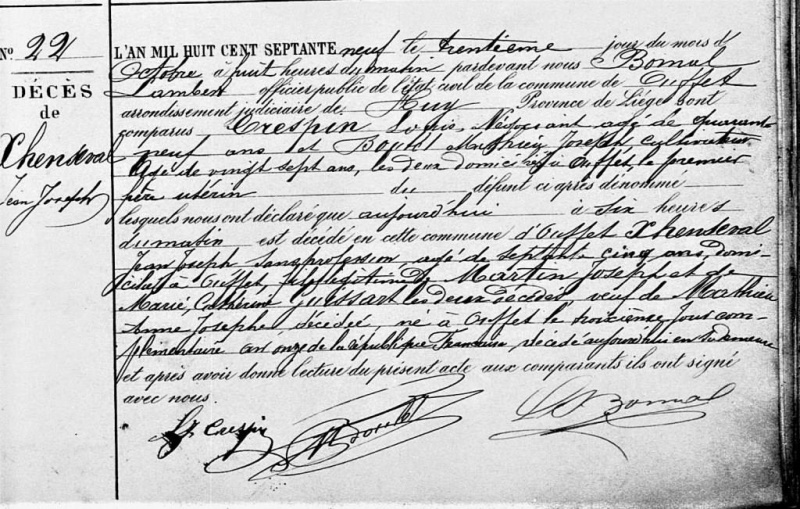 N° 22
DÉCÈS
de
Xhenseval
Jean Joseph
L'AN MIL HUIT CENT SEPTANTE neuf le trentième jour du mois d'
Octobre à huit heures du matin pardevant nous Bomal
Lambert officier public de l'état civil de la commune de Ouffet
arrondissement judiciaire de Huy Province de Liége sont
comparus Crespin Louis, Négociant agé de quarante
neuf ans et Mathieu Joseph, cultivateur
agé de vingt sept ans, les deux domiciliés à Ouffet, le premier
frère utérin du défunt ci après dénommé
lesquels nous ont déclaré que aujourd'hui à six heures
du matin est décédé en cette commune d'Ouffet Xhenseval
Jean Joseph sans profession, agé de septante cinq ans, domi-
cilié à Ouffet, fils légitime de Martin Joseph et de
Marie Catherine les deux décédés, veuf de Mathieu
Anne Josephe, décédée, né à Ouffet le troixième jour com-
plémentaire an onze de la république française, décédé aujourd'hui en sa demeure
et après avoir donné lecture du présent acte aux comparants ils ont signé
avec nous.
Crespin
Bomal